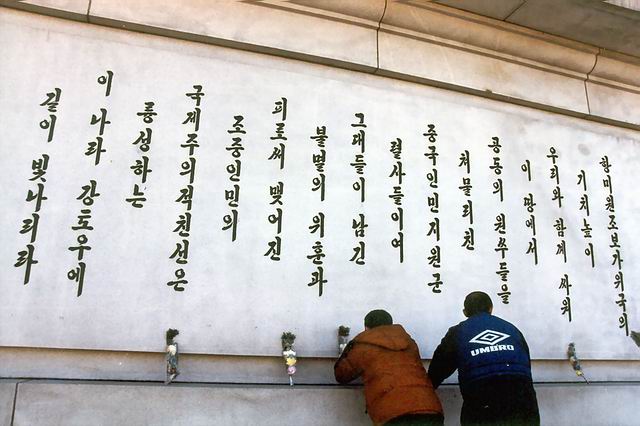 항미원조보가위국의
기치높이
우리와 함께 싸워
이 땅에서
공동의 원쑤들을
쳐물리친
중국인민지원군
렬사들이여
그대들이 남긴
불멸의 위훈과
피로써 맺어진
조중인민의
국제주의적친선은
륭성하는
이 나라 강토우에
길이 빛나리라
UMBRO